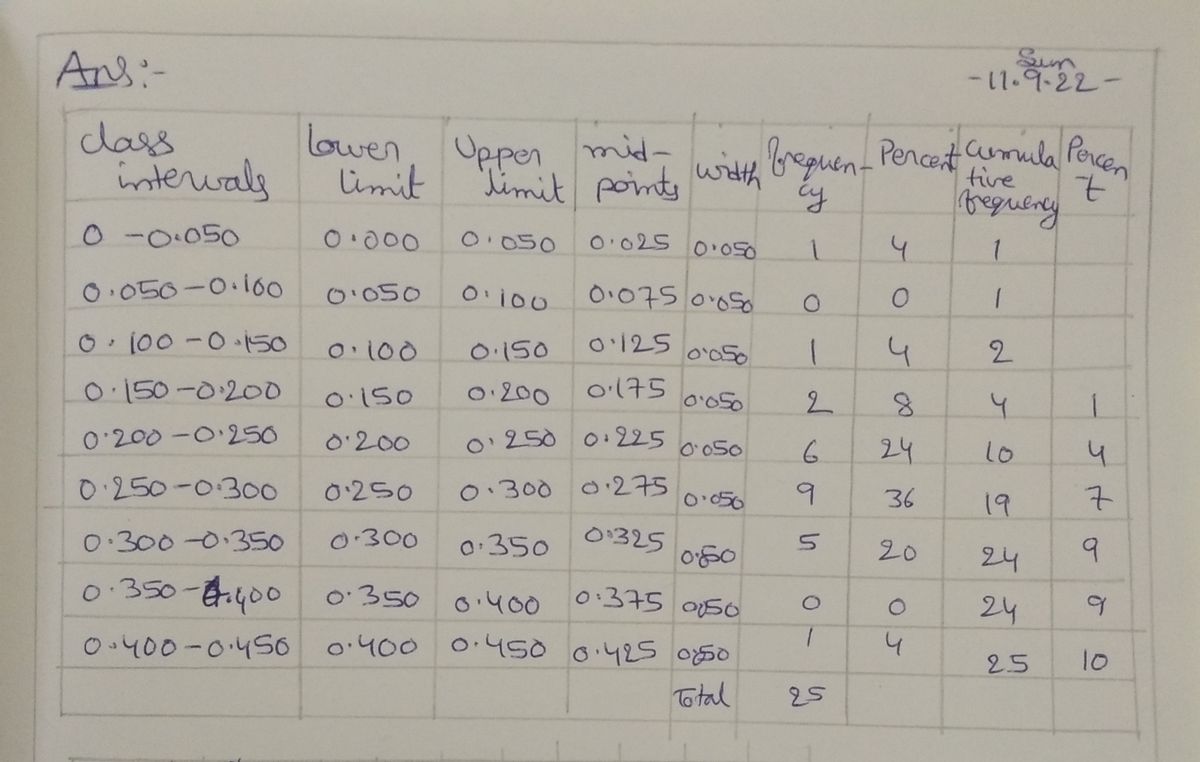 Ans:-
Sun
-11.9.22-
class intervals | Lower limit | Upper limit | mid-points | width | frequen-cy | Percent | Cumulative frequency | Percent
0 -0.050 0.000 0.050 0.025 0.050 1 4 1
0.050-0.100 0.050 0.100 0.075 0.050 0 0 1
0.100-0.150 0.100 0.150 0.125 0.050 1 4 2
0.150-0.200 0.150 0.200 0.175 0.050 2 8 4 1
0.200-0.250 0.200 0.250 0.225 0.050 6 24 10 4
0.250-0.300 0.250 0.300 0.275 0.050 9 36 19 7
0.300-0.350 0.300 0.350 0.325 0.050 5 20 24 9
0.350-0.400 0.350 0.400 0.375 0.050 0 0 24 9
0.400-0.450 0.400 0.450 0.425 0.050 1 4 25 10
Total 25